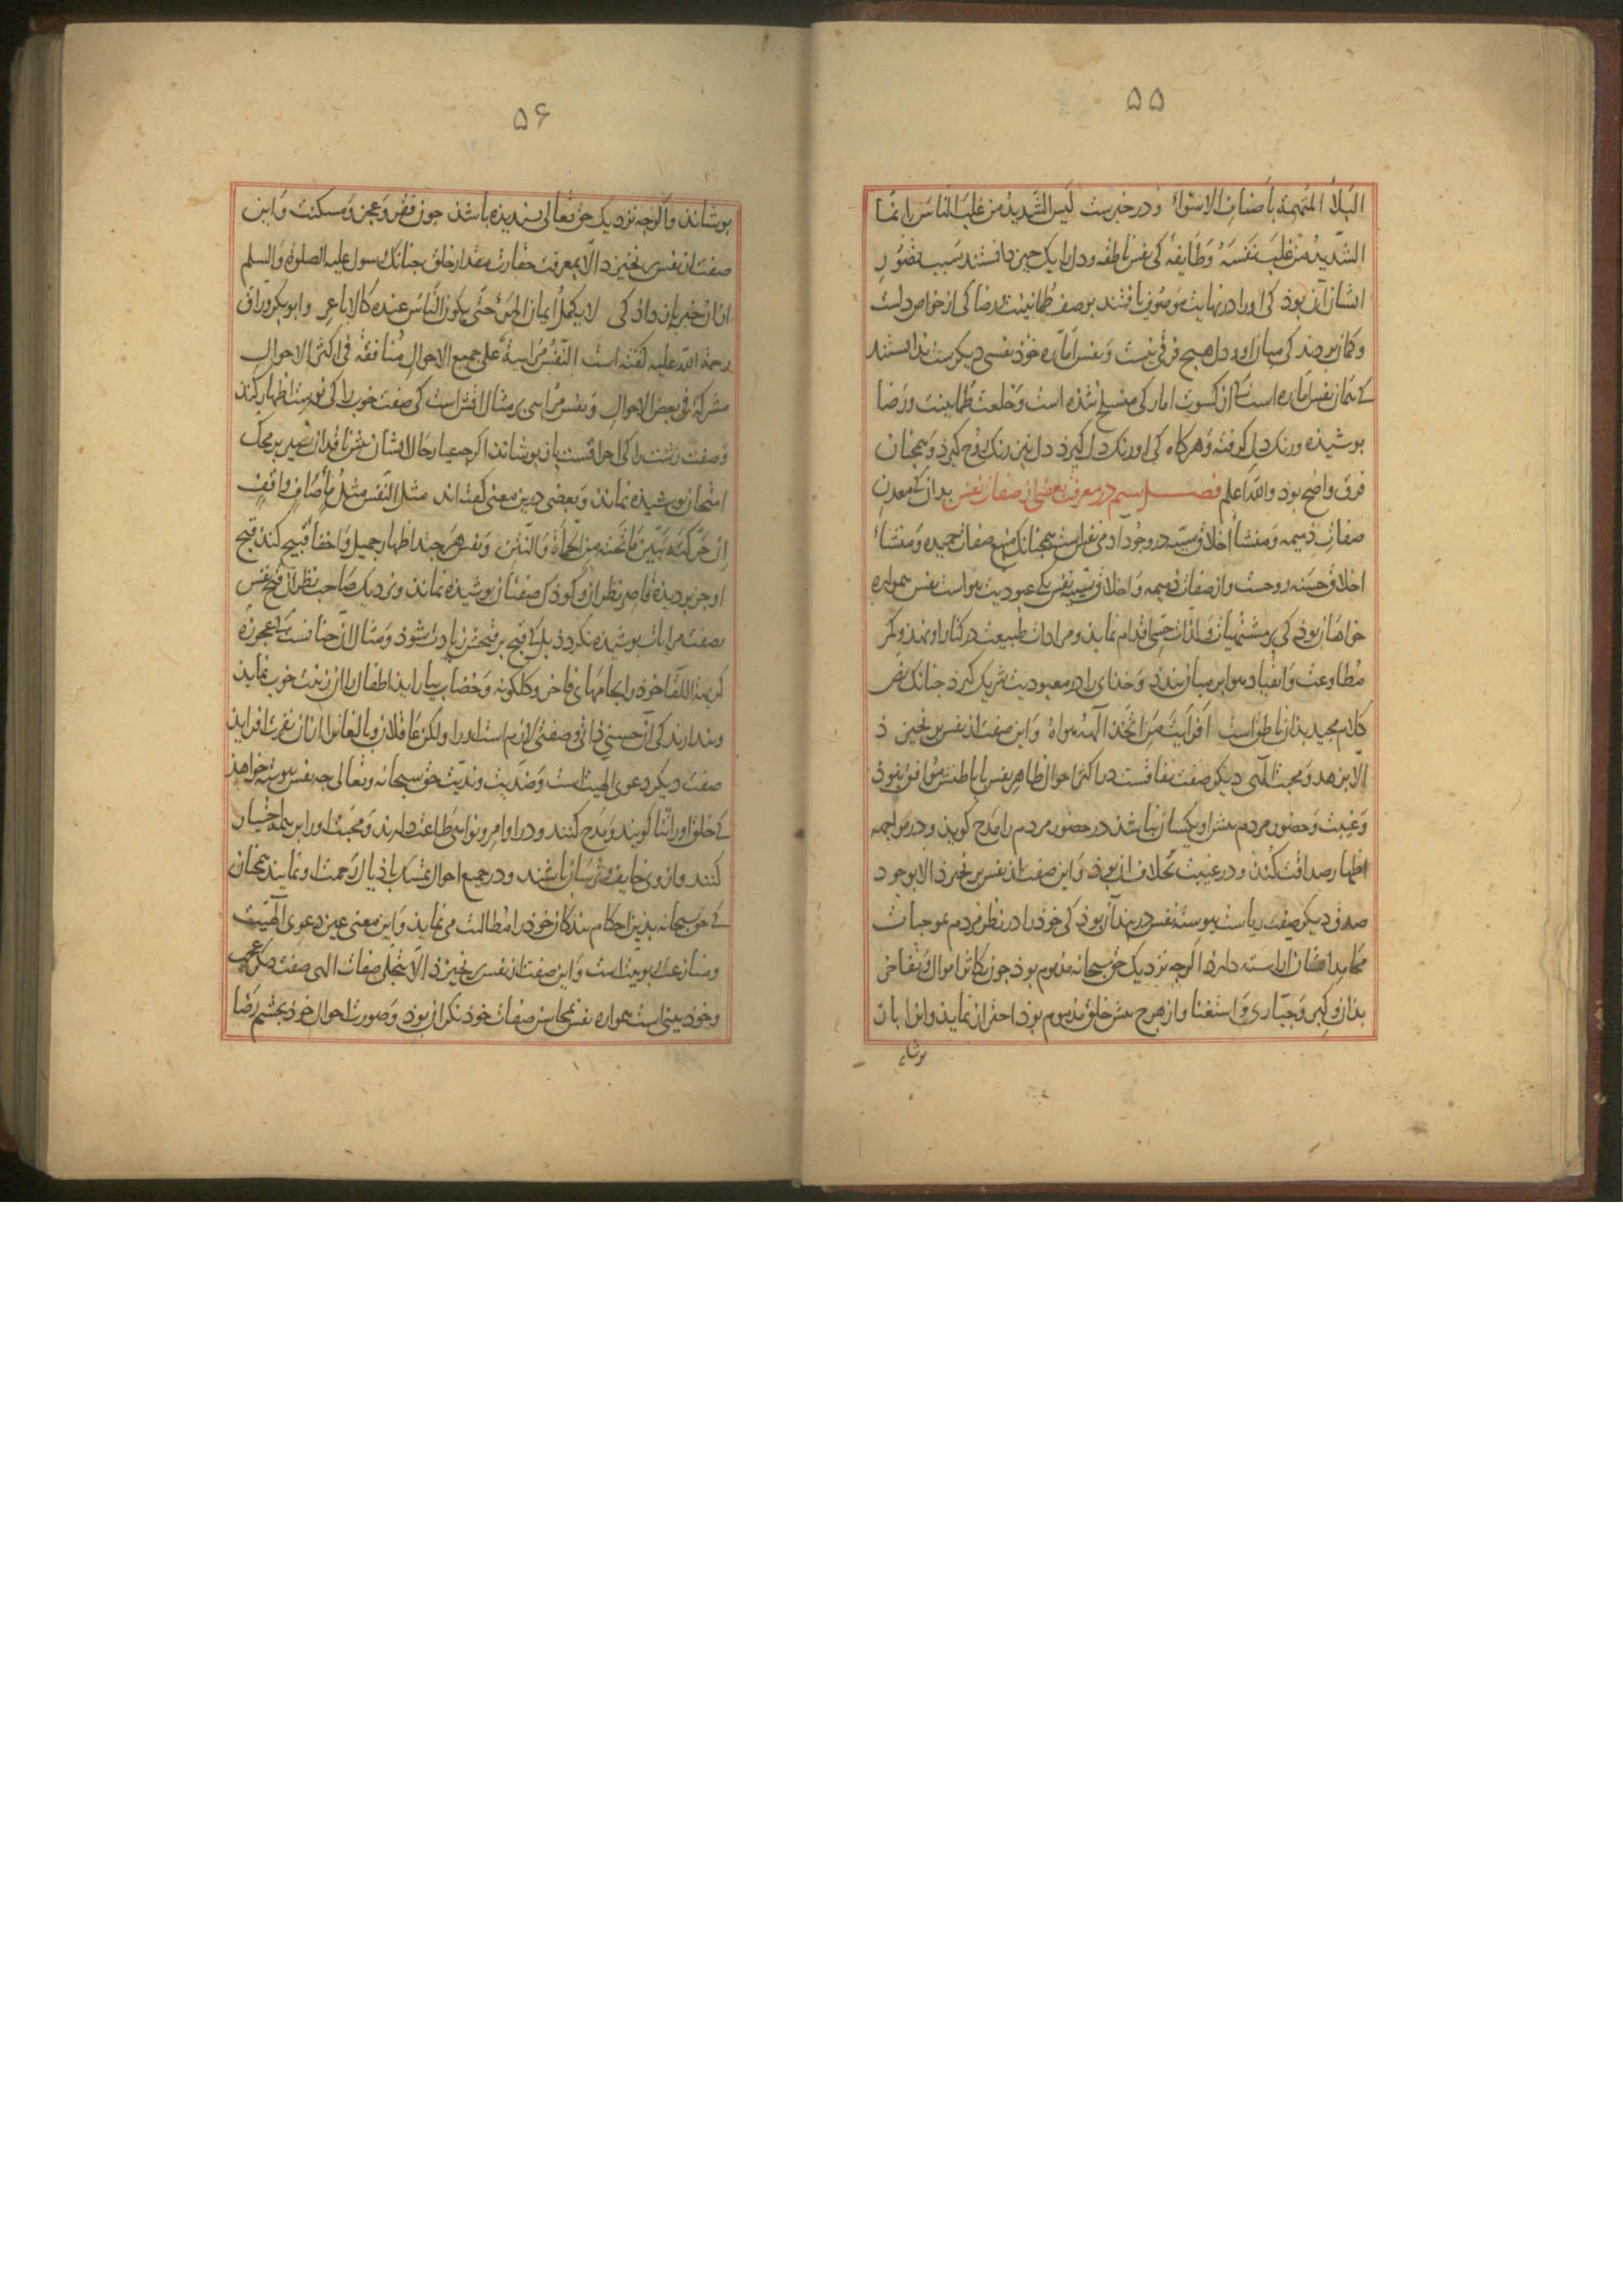 ۵۵
البلاء المتهمة باصناف الاستواء و در خبرست لیس الشدید من غلب الناس انما
الشدید من غلب نفسه و طایفهٔ کی نفس ناطقه و دل را یک چیز دانستند سبب تصور
ایشان آن بوذ کی او را در نهایت موصوف یافتند بوصف طمانینت و رضا کی از خواص دلست
و کمان بردند کی میان او و دل هیچ فرقی نیست و نفس اماره خوذ نفسی دیکرست ندانستند
که همان نفس اماره است کی از کسوت امارکی منسلخ شذه است و خلعت طمانینت و رضا
بوشیذه و رنک دل کرفته و هرکاه کی او رنک دل کیرذ دل نیز رنک روح کیرذ و همجنان
فرق واضح بوذ والله اعلم فصل سیم در معرفت بعضی از صفات نفس بدان که معدن
صفات ذمیمه و منشأ اخلاق سیّیه در وجود آدمی نفس است همجنانک منبع صفات حمیده و منشاء
اخلاق حسنه روحست و از صفات ذمیمه و اخلاق سیّیه نفس یکی عبودیت هواست نفس همواره
خواهان بوذ کی بر مشتهیات و لذات حسی اقدام نمایذ و مرادات طبیعت در کنار او نهذ و کمر
مطاوعت و انقیاد هوا بر میان بندد و خذای را در معبودیت شریک کیرذ جنانک نص
کلام مجید بذان ناطق است افرایت من اتخذ الهه هواه و این صفت از نفس برنخیزد
الا بزهد و محبت الهی دیکر صفت نفاقست در اکثر احوال ظاهر نفس با باطنش موافق نبوذ
و غیبت و حضور مردم پیش او یکسان نباشذ در حضور مردم را مدح کویذ و در مواجهه
اظهار صداقت کند و در غیبت بخلاف آن بوذ و این صفت از نفس برنخیزذ الا بوجود
صدق دیکر صفت ریاست پیوسته نفس در بند آن بوذ کی خوذ را در نظر مردم بموجبات
محامد ایشان آراسته دارذ اکرجه نزدیک حق سبحانه مذموم بوذ جون تکاثر اموال و تفاخر
بذان و کبر و جبّاری و استغنا و از هرج پیش خلق مذموم بوذ احتراز نمایذ و آنرا بان
بوشاند
۵۶
بوشاند و اکرجه نزدیک حق تعالی پسندیذه باشذ جون فقر و عجز و مسکنت و این
صفت از نفس برنخیزد الا بمعرفت حقارت مقدار خلق جنانک رسول علیه الصلوة والسلم
از آن خبر باز داذ کی لا یکمل ایمان المرء حتی یکون الناس عنده کالاباعر و ابو بکر وراق
رحمة الله علیه کفته است النفس مرائیة علی جمیع الاحوال منافقة فی اکثر الاحوال
مشرکة فی بعض الاحوال و نفس مرائی بر مثال آتش است کی صفت خوب را کی نورست اظهار کند
و صفت زشت را کی احراقست بان بوشاند اکرجه عیار حال ایشان بیش ناقدان بصیر بر محک
امتحان بوشیذه نماند و بعضی درین معنی کفته اند مثل النفس مثل ماء صاف واقف
ان حرکته تبین ما تحته من الحمأة والنتن و نفس هر جند اظهار جمیل و اخفاء قبیح کند قبح
او جز بر دیذهٔ قاصر نظران و کوذک صفتان بوشیذه نماند و نزدیک صاحب نظران قبح نفس
بصفت مرایات بوشیذه نکردذ بل که قبح بر قبحش زیادت شوذ و مثال آن جنانست که عجوزهٔ
کریهة اللقا خوذ را بجامهای فاخر و کلکونه و خضاب بیارایذ اطفال را آن زینت خوب نمایذ
و بندارند کی آن حسنی ذاتی و صفتی لازم است او را و لکن عاقلان و بالغان را از آن نفرت افزایذ
صفت دیکر دعوی الهیت است و ضدیت و ندیت حق سبحانه و تعالی جه نفس پیوسته خواهذ
که خلق او را ثنا کویند و مدح کنند و در اوامر و نواهی طاعت دارند و محبت او را بر همه اختیار
کنند و از وی خایف و ترسان باشند و در جمیع احوال تمسک باذیال رحمت او نمایند همجنان
که حق سبحانه بذین احکام بندکان خوذ را مطالبت می نمایذ و این معنی عین دعوی الهیت
و منازعت ربوبیت است و این صفت از نفس برنخیزذ الا بتجلی صفات الهی صفت دیکر عجب
و خوذ بینی است همواره نفس بمحاسن صفات خوذ نکران بوذ و صورت احوال خوذ بچشم رضا